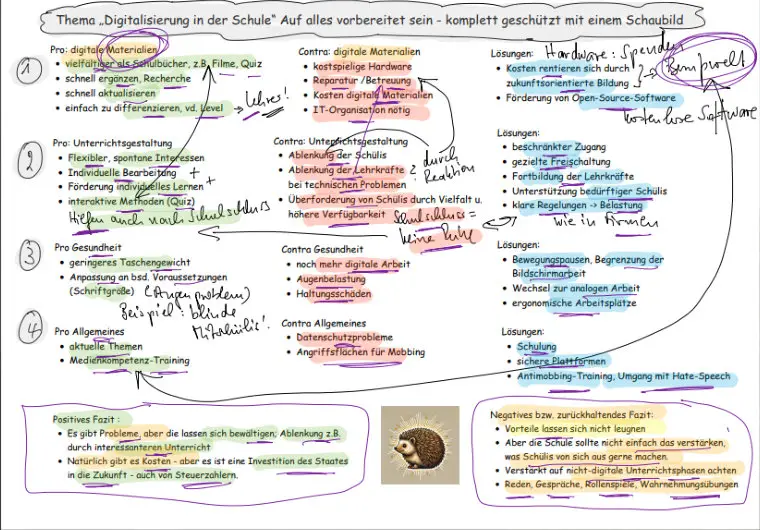 Thema „Digitalisierung in der Schule“ Auf alles vorbereitet sein - komplett geschützt mit einem Schaubild
1
Pro: digitale Materialien
• vielfältiger als Schulbücher, z.B. Filme, Quiz
• schnell ergänzen, Recherche
• schnell aktualisieren
• einfach zu differenzieren, vd. Level
Lehrer!
Contra: digitale Materialien
• kostspielige Hardware
• Reparatur /Betreuung
• Kosten digitale Materialien
• IT-Organisation nötig
Lösungen:
Hardware: Spenden
• Kosten rentieren sich durch
zukunftsorientierte Bildung
• Förderung von Open-Source-Software
Berufswelt
kostenlose Software
2
Pro: Unterrichtsgestaltung
• Flexibler, spontane Interessen
• Individuelle Bearbeitung +
• Förderung individuelles Lernen +
• interaktive Methoden (Quiz)
Helfen auch nach Schulschluss
Contra: Unterrichtsgestaltung
• Ablenkung der Schülis
• Ablenkung der Lehrkräfte
bei technischen Problemen
durch
Reaktion
• Überforderung von Schülis durch Vielfalt u.
höhere Verfügbarkeit
Schulschluss =
keine Ruhe
Lösungen:
• beschränkter Zugang
• gezielte Freischaltung
• Fortbildung der Lehrkräfte
• Unterstützung bedürftiger Schülis
• klare Regelungen -> Belastung
wie in Firmen
3
Pro Gesundheit
• geringeres Taschengewicht
• Anpassung an bsd. Voraussetzungen
(Schriftgröße)
(Augenproblem)
Beispiel: blinde
Mitschülis!
Contra Gesundheit
• noch mehr digitale Arbeit
• Augenbelastung
• Haltungsschäden
Lösungen:
• Bewegungspausen, Begrenzung der
Bildschirmarbeit
• Wechsel zur analogen Arbeit
• ergonomische Arbeitsplätze
4
Pro Allgemeines
• aktuelle Themen
• Medienkompetenz-Training
Contra Allgemeines
• Datenschutzprobleme
• Angriffsflächen für Mobbing
Lösungen:
• Schulung
• sichere Plattformen
• Antimobbing-Training, Umgang mit Hate-Speech
Positives Fazit :
• Es gibt Probleme, aber die lassen sich bewältigen, Ablenkung z.B.
durch interessanteren Unterricht
• Natürlich gibt es Kosten - aber es ist eine Investition des Staates
in die Zukunft - auch von Steuerzahlern.
Negatives bzw. zurückhaltendes Fazit:
• Vorteile lassen sich nicht leugnen
• Aber die Schule sollte nicht einfach das verstärken,
was Schülis von sich aus gerne machen.
• Verstärkt auf nicht-digitale Unterrichtsphasen achten
• Reden, Gespräche, Rollenspiele, Wahrnehmungsübungen